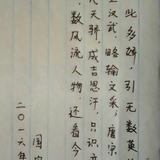 此多娇，引无数英
汉武，略输文采，唐宗
天骄，成吉思汗，只识
，数风流人物，还看今
二〇一六年国